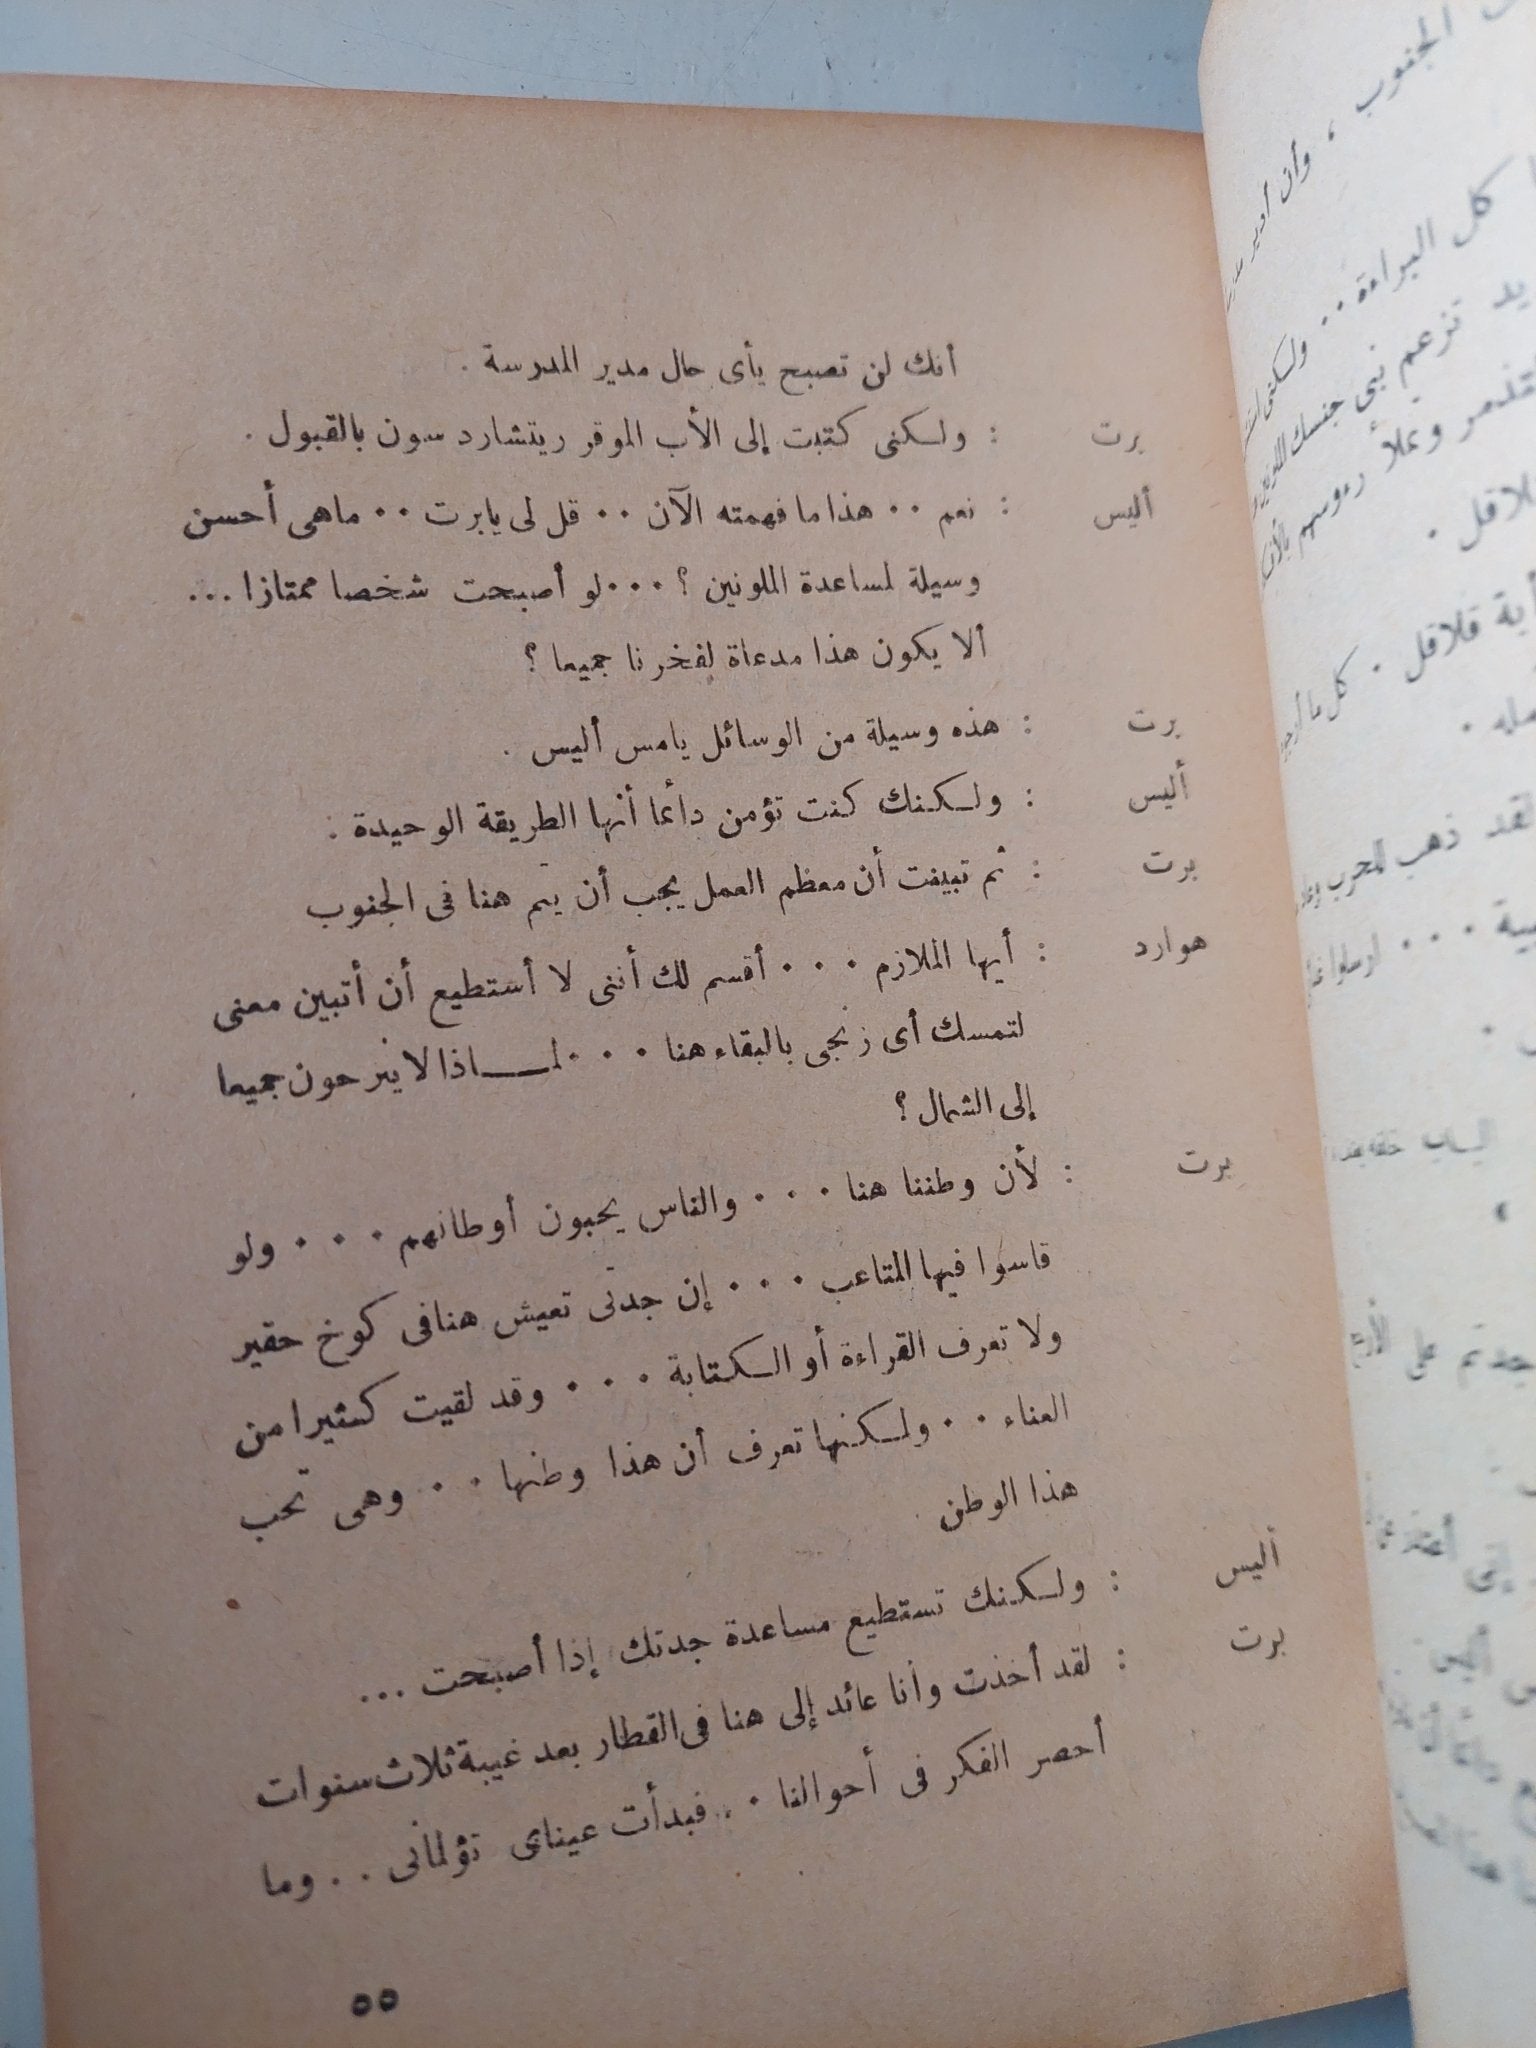 أنك لن تصبح بأى حال مدير المدرسة .
برت : ولكنى كتبت إلى الأب الموقر ريتشارد سون بالقبول .
أليس : نعم ٠٠ هذا ما فهمته الآن ٠٠ قل لى يا برت ٠٠ ماهى أحسن
وسيلة لمساعدة الملونين ؟ ٠٠٠ لو أصبحت شخصا ممتازا ...
ألا يكون هذا مدعاة لفخرنا جميعا ؟
برت : هذه وسيلة من الوسائل يامس أليس .
أليس : ولكنك كنت تؤمن دائما أنها الطريقة الوحيدة :
برت : ثم تبينت أن معظم العمل يجب أن يتم هنا فى الجنوب
هوارد : أيها الملازم ٠٠٠ أقسم لك أننى لا أستطيع أن أتبين معنى
لتمسك أى زنجى بالبقاء هنا ٠٠٠ لمـــاذا لا ينرحون جميعا
إلى الشمال ؟
برت : لأن وطننا هنا ٠٠٠ والناس يحبون أوطانهم ٠٠٠ ولو
قاسوا فيها المتاعب ٠٠٠ إن جدتى تعيش هنافى كوخ حقير
ولا تعرف القراءة أو الكتابة ٠٠٠ وقد لقيت كثيرا من
العناء ٠٠ ولكنها تعرف أن هذا وطنها ٠٠ وهى تحب
هذا الوطن
أليس : ولكنك تستطيع مساعدة جدتك إذا أصبحت ...
برت : لقد أخذت وأنا عائد إلى هنا فى القطار بعد غيبة ثلاث سنوات
أحصر الفكر فى أحوالنا ٠٠ فبدأت عيناى تؤلمانى .. وما
٥٥
الجنوب ، وأن أدير
كل البراءة ٠٠ ولكنى
تزعم بنى جنسك الملونين
وتملأ رءوسهم
قلاقل . كل ما أرجو
لقد ذهب للحرب
٠٠٠ ارسلوا